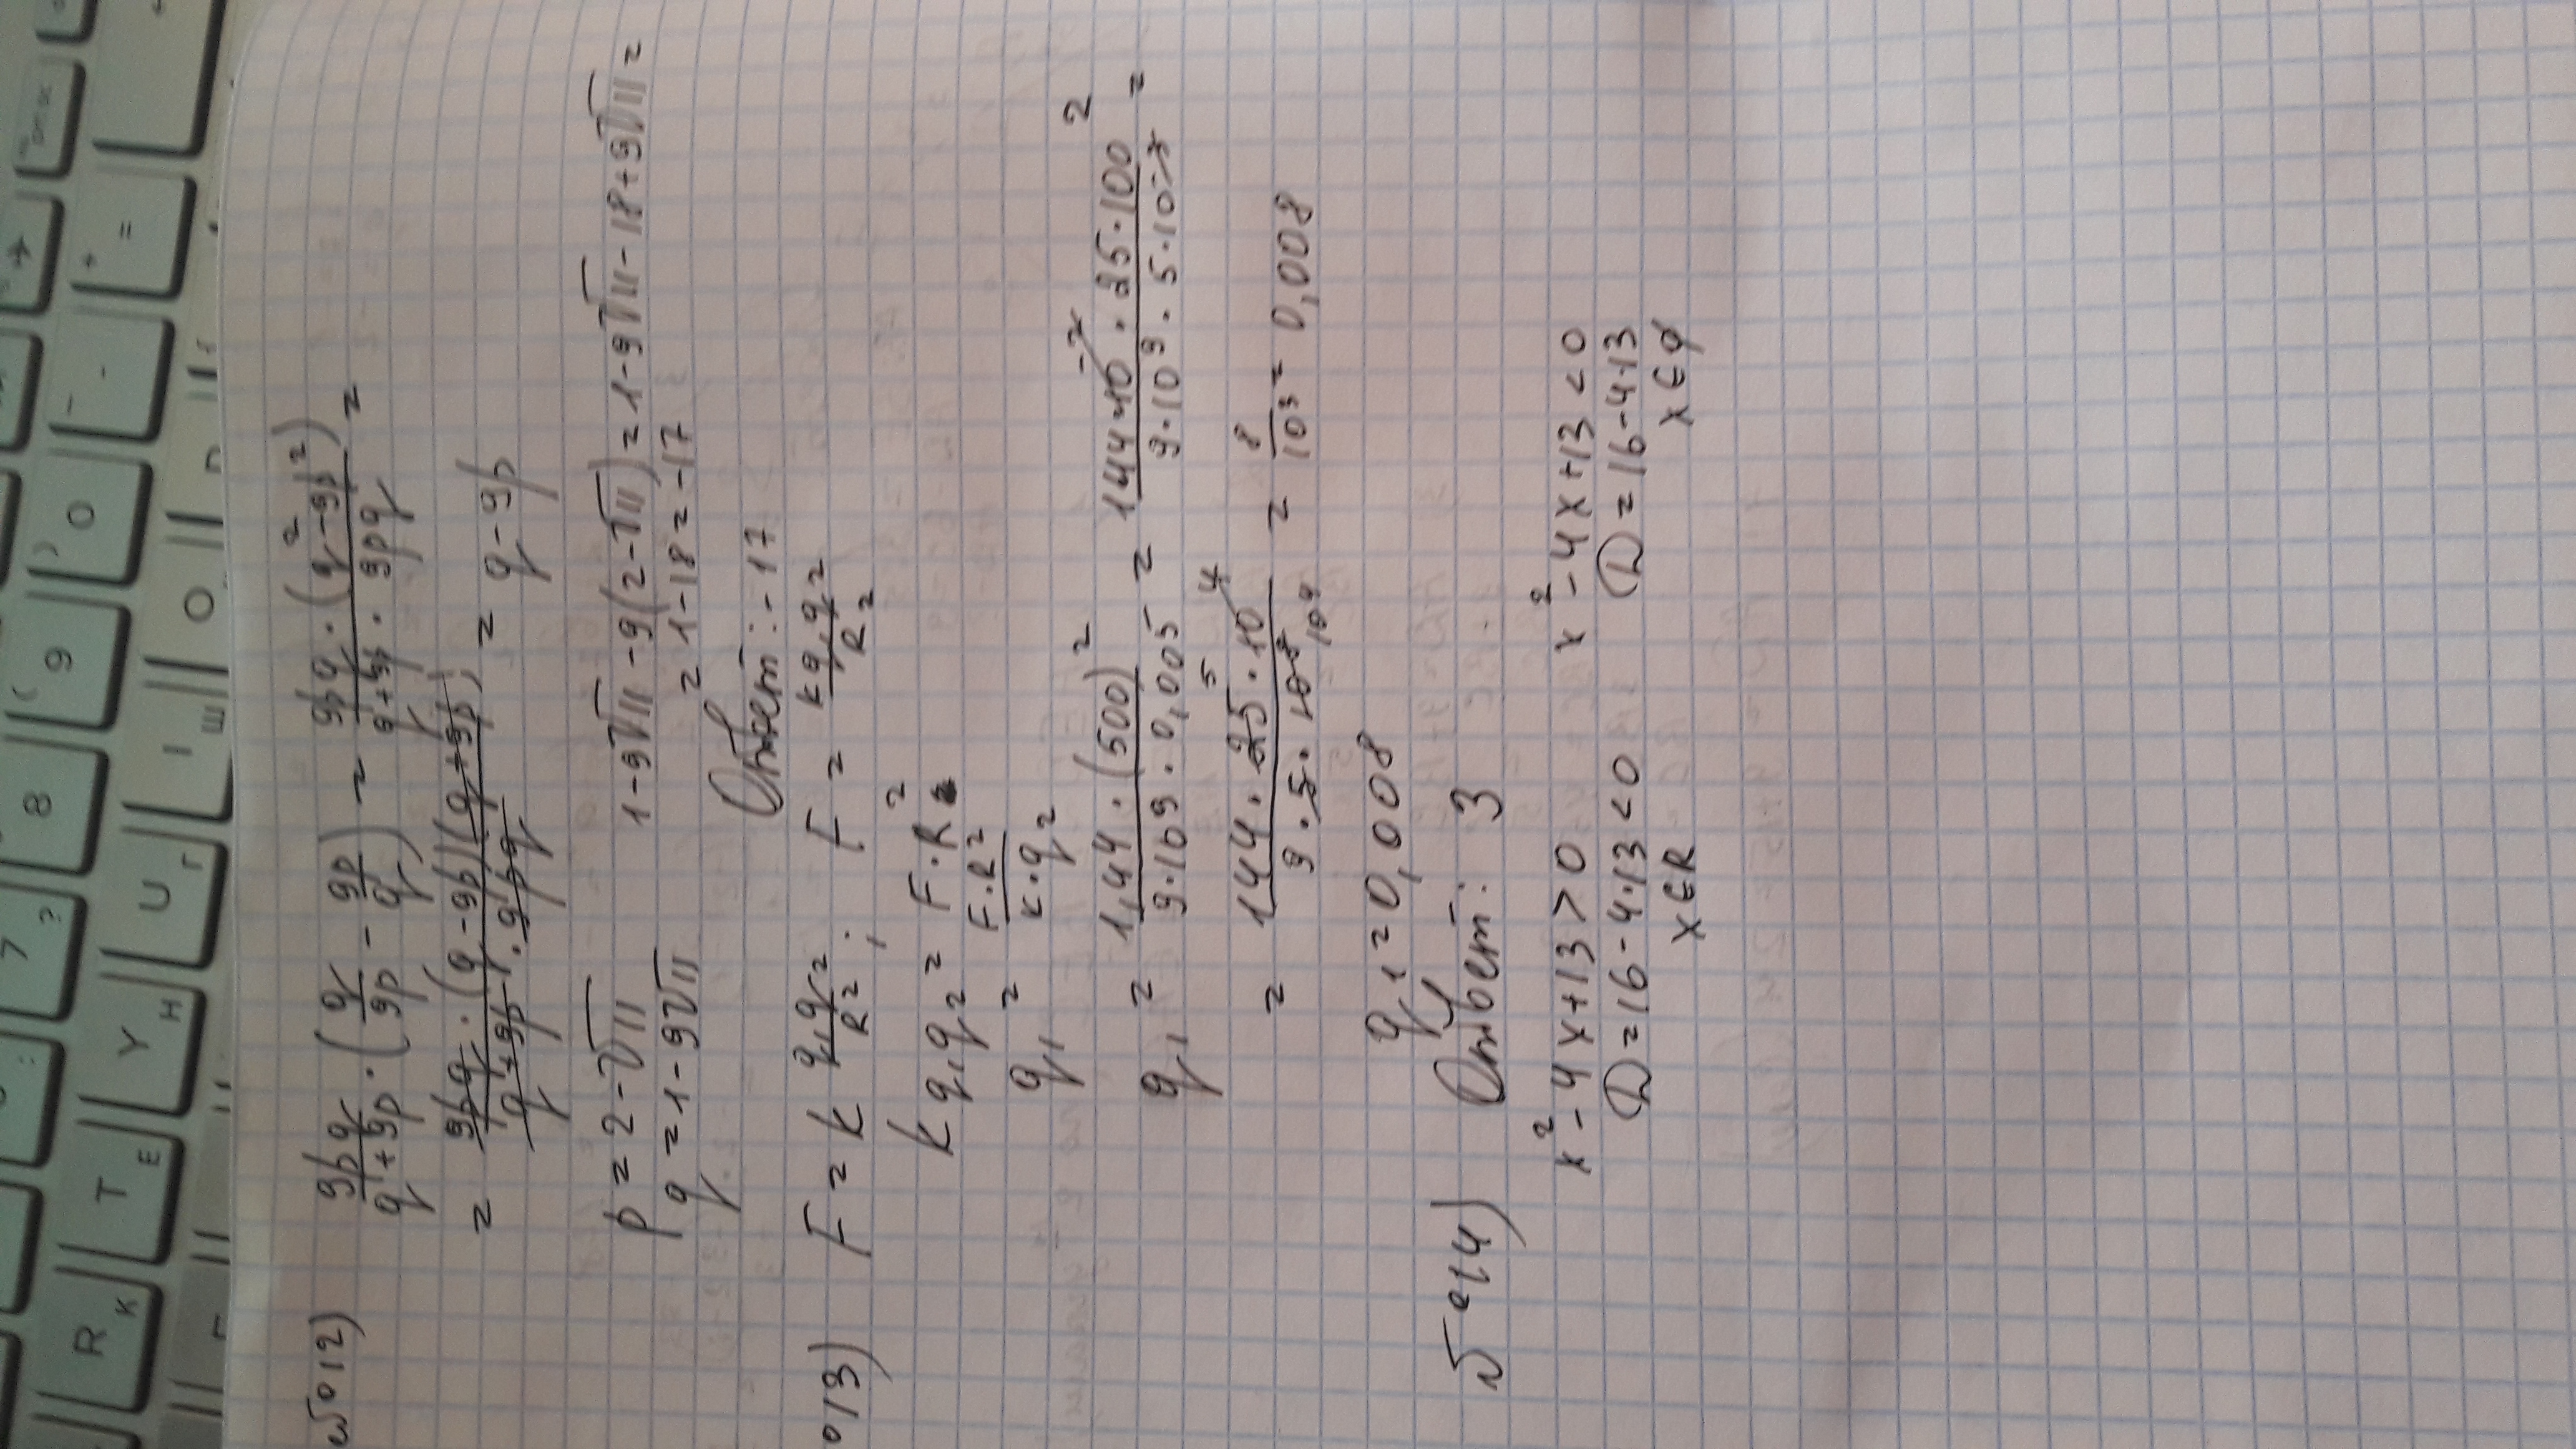 №12)
9pq/(q+9p) · (q/9p - 9p/q) = 9pq · (q² - 9p²)/(q+9p · 9pq) =
= 9pq · (q-9p)(q+9p)/(q+9p · 9pq) = q-9p
p = 2-√11
q = 1-9√11
1-9√11 -9(2-√11) = 1-9√11-18+9√11 =
= 1-18 = -17
Ответ: -17
13)
F = k q₁q₂/R²; F = kq₁q₂/R²
kq₁q₂ = F·R²
q₁ = F·R²/(k·q₂)
q₁ = 1,44 · (500)²/(9·10⁹ · 0,005) = 144·10⁻² · 25·100²/(9·10⁹ · 5·10⁻³) =
= 144 · 25 · 10⁴/(9·5·10⁸) = 8/10³ = 0,008
q₁ = 0,008
Ответ: 3
№14)
x²-4x+13>0 x²-4x+13<0
D=16-4·13<0 D=16-4·13
x∈R x∈∅